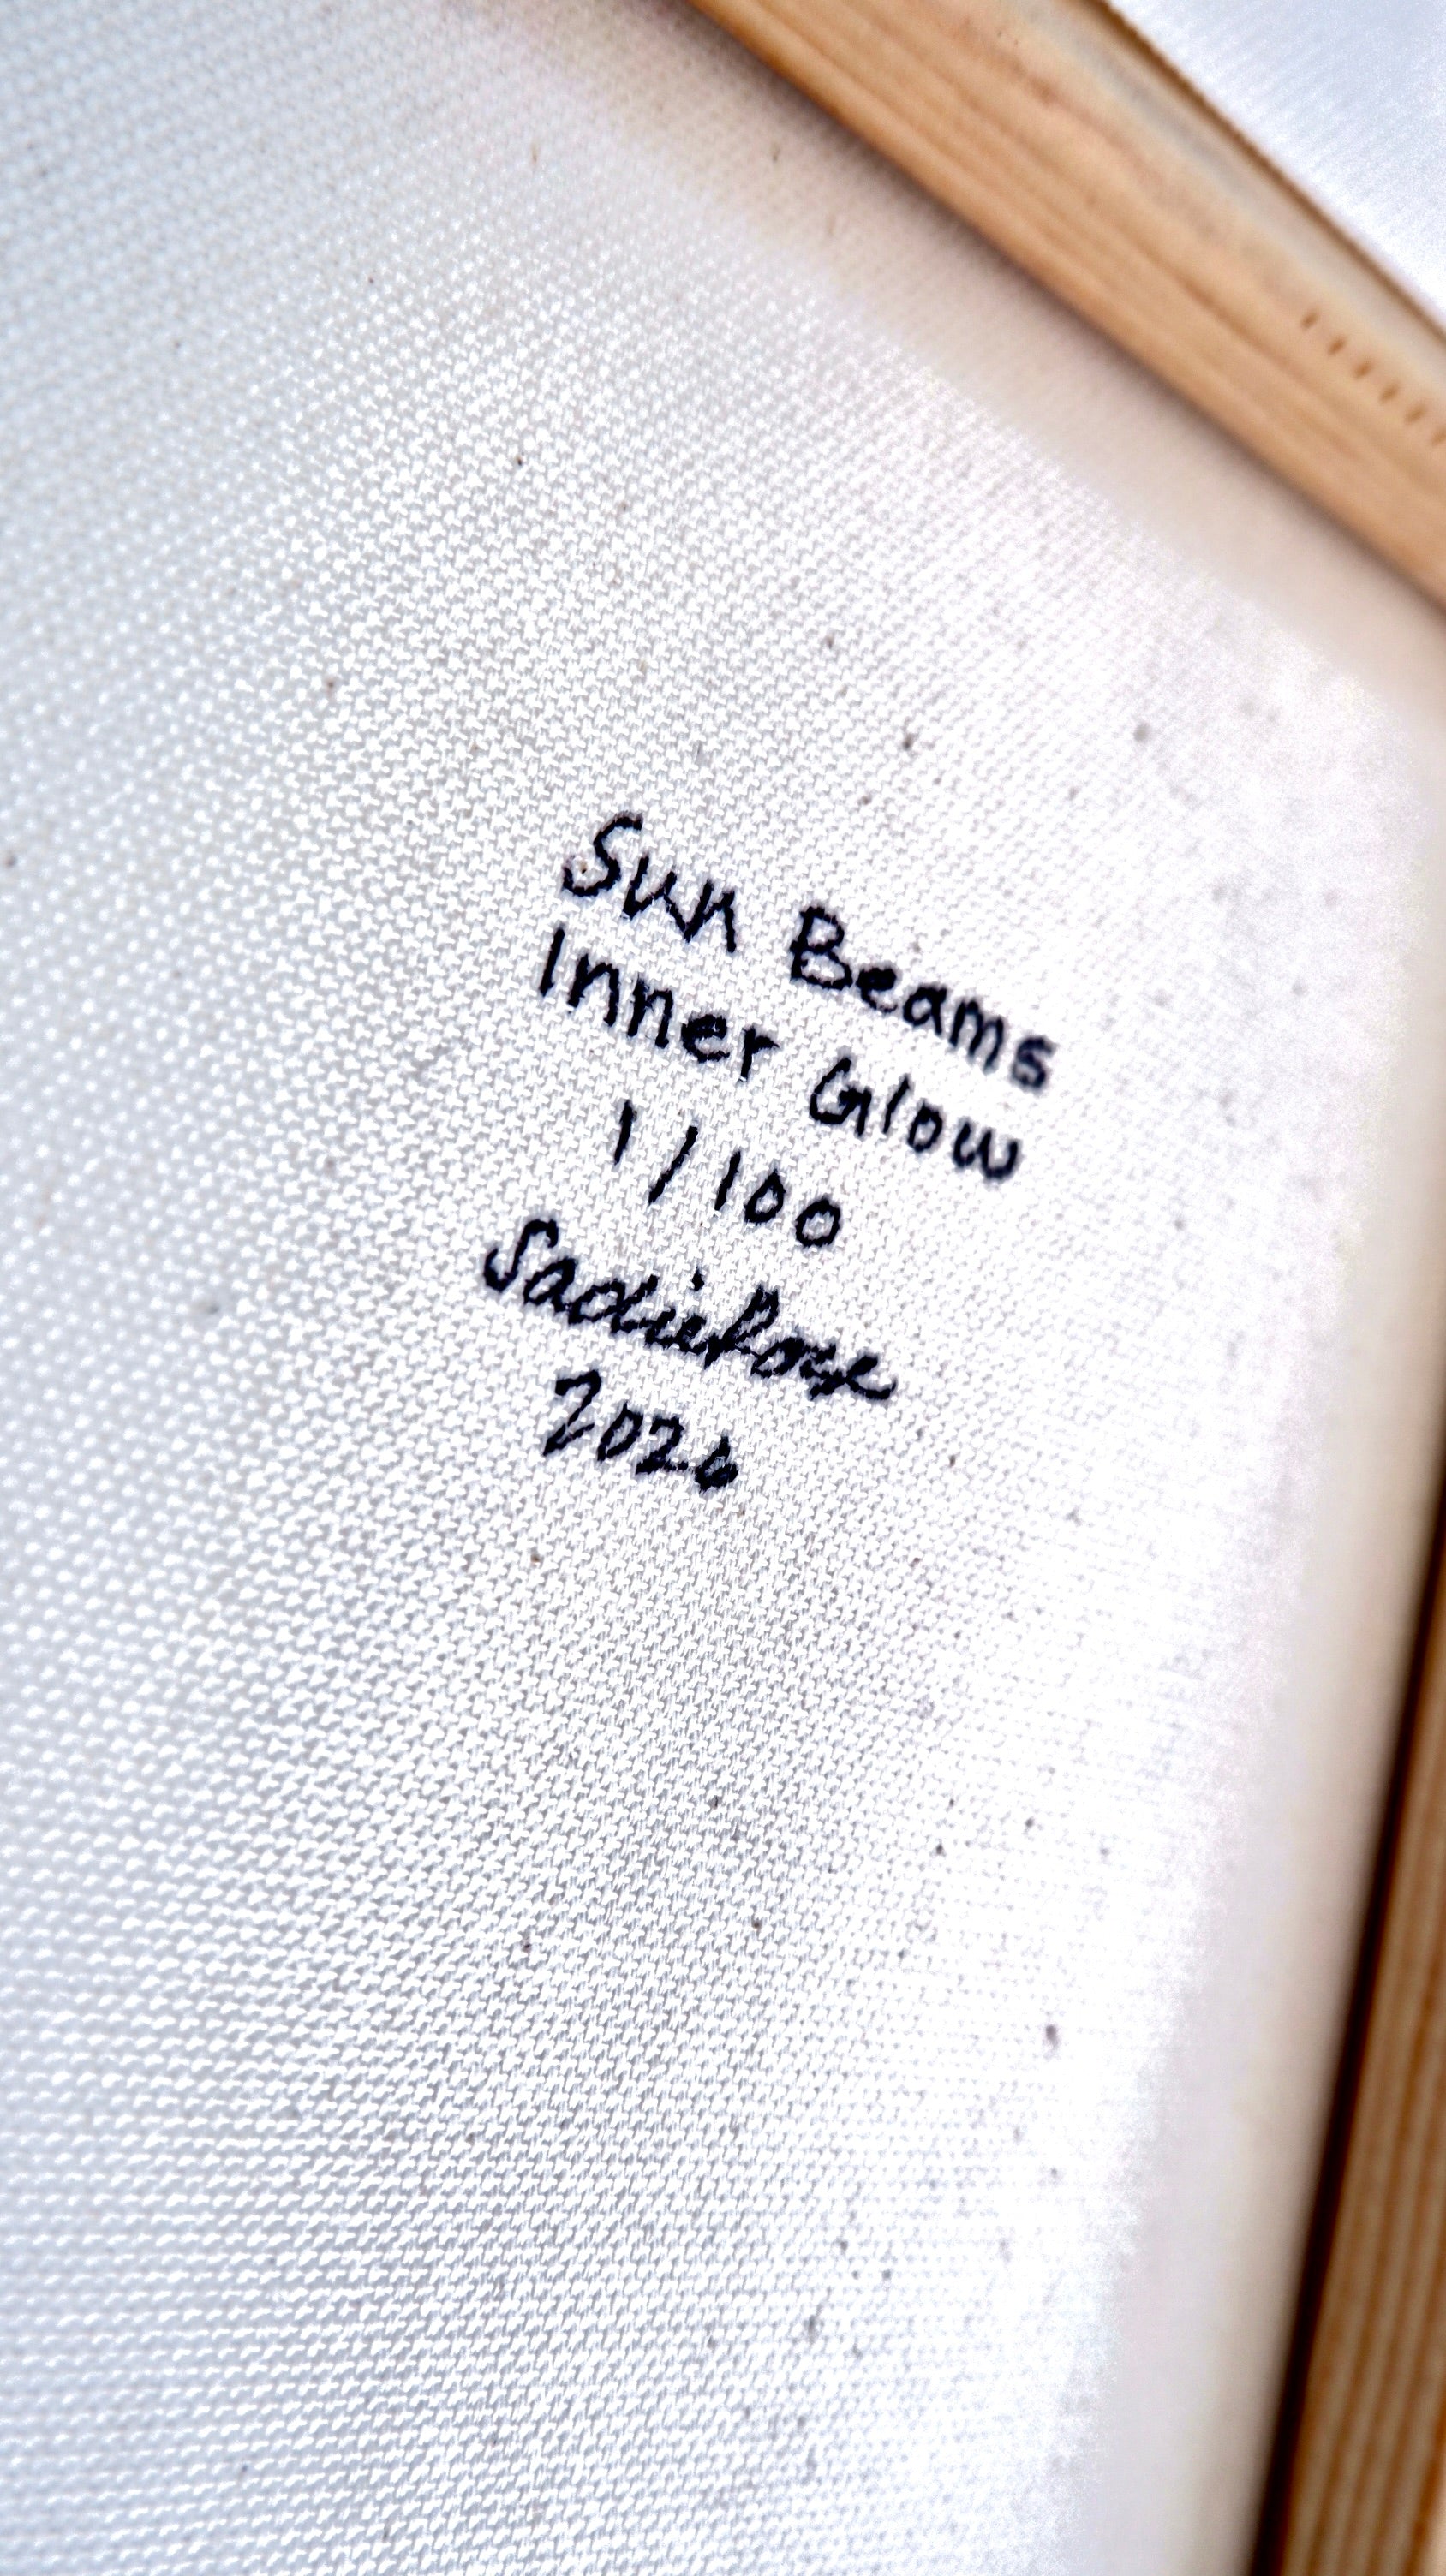 Sun Beams
Inner Glow
1/100
SadieRose
2026